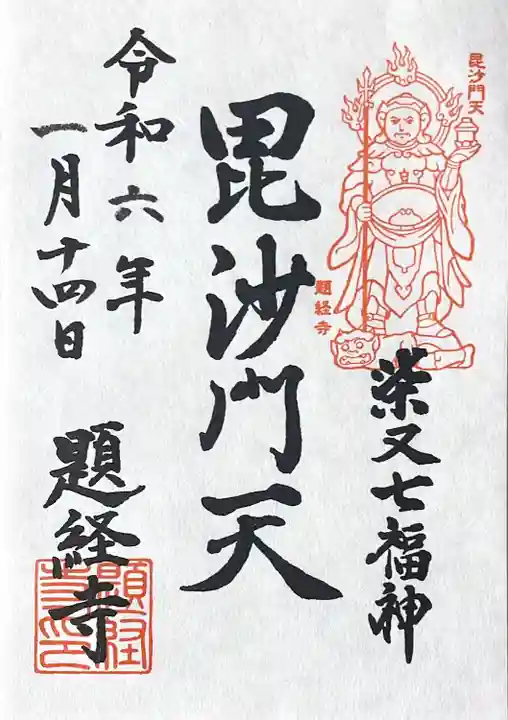 毘沙門天
題経寺
柴又七福神
毘沙門天
令和六年
一月十四日
題経寺